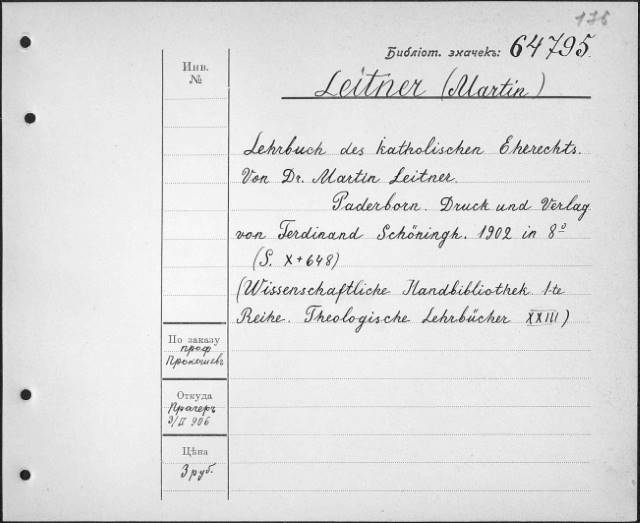 136
Библіот. значекъ: 64795.
Инв.
№
Leitner (Martin)
Lehrbuch des katholischen Eherechts.
Von Dr. Martin Leitner.
Paderborn. Druck und Verlag
von Ferdinand Schöningh. 1902 in 8º
(S. X + 648)
(Wissenschaftliche Handbibliothek 1-te
Reihe. Theologische Lehrbücher XXIII)
По заказу
проф
Прокошевъ
Откуда
Прагеръ
3/II 906
Цѣна
3 руб.